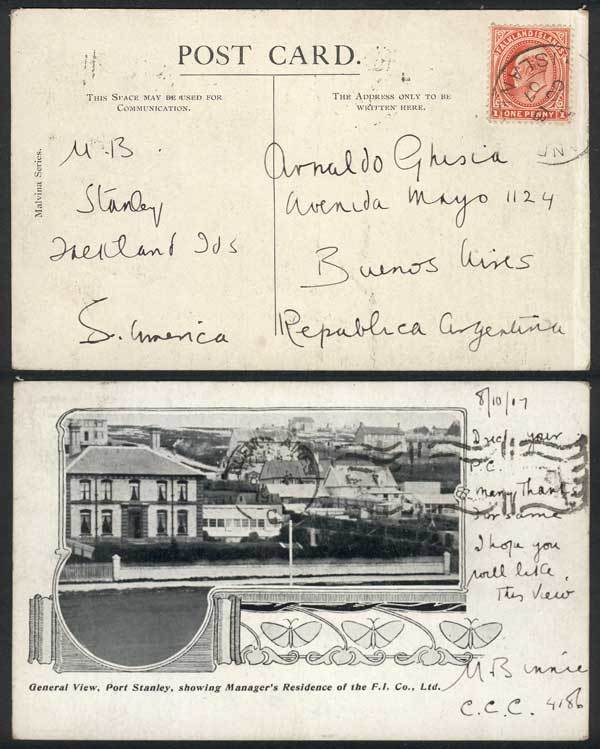 POST CARD.
THIS SPACE MAY BE USED FOR
COMMUNICATION.
THE ADDRESS ONLY TO BE
WRITTEN HERE.
FALKLAND ISLANDS
1 ONE PENNY 1
Malvina Series.
M.B.
Stanley
Falkland Ids
S. America
Arnaldo Ghisia
Avenida Mayo 1124
Buenos Aires
Republica Argentina
8/10/07
Recd your
P.C.
many thanks
for same
I hope you
will like
this View
M Binnie
C.C.C. 4186
General View, Port Stanley, showing Manager's Residence of the F.I. Co., Ltd.